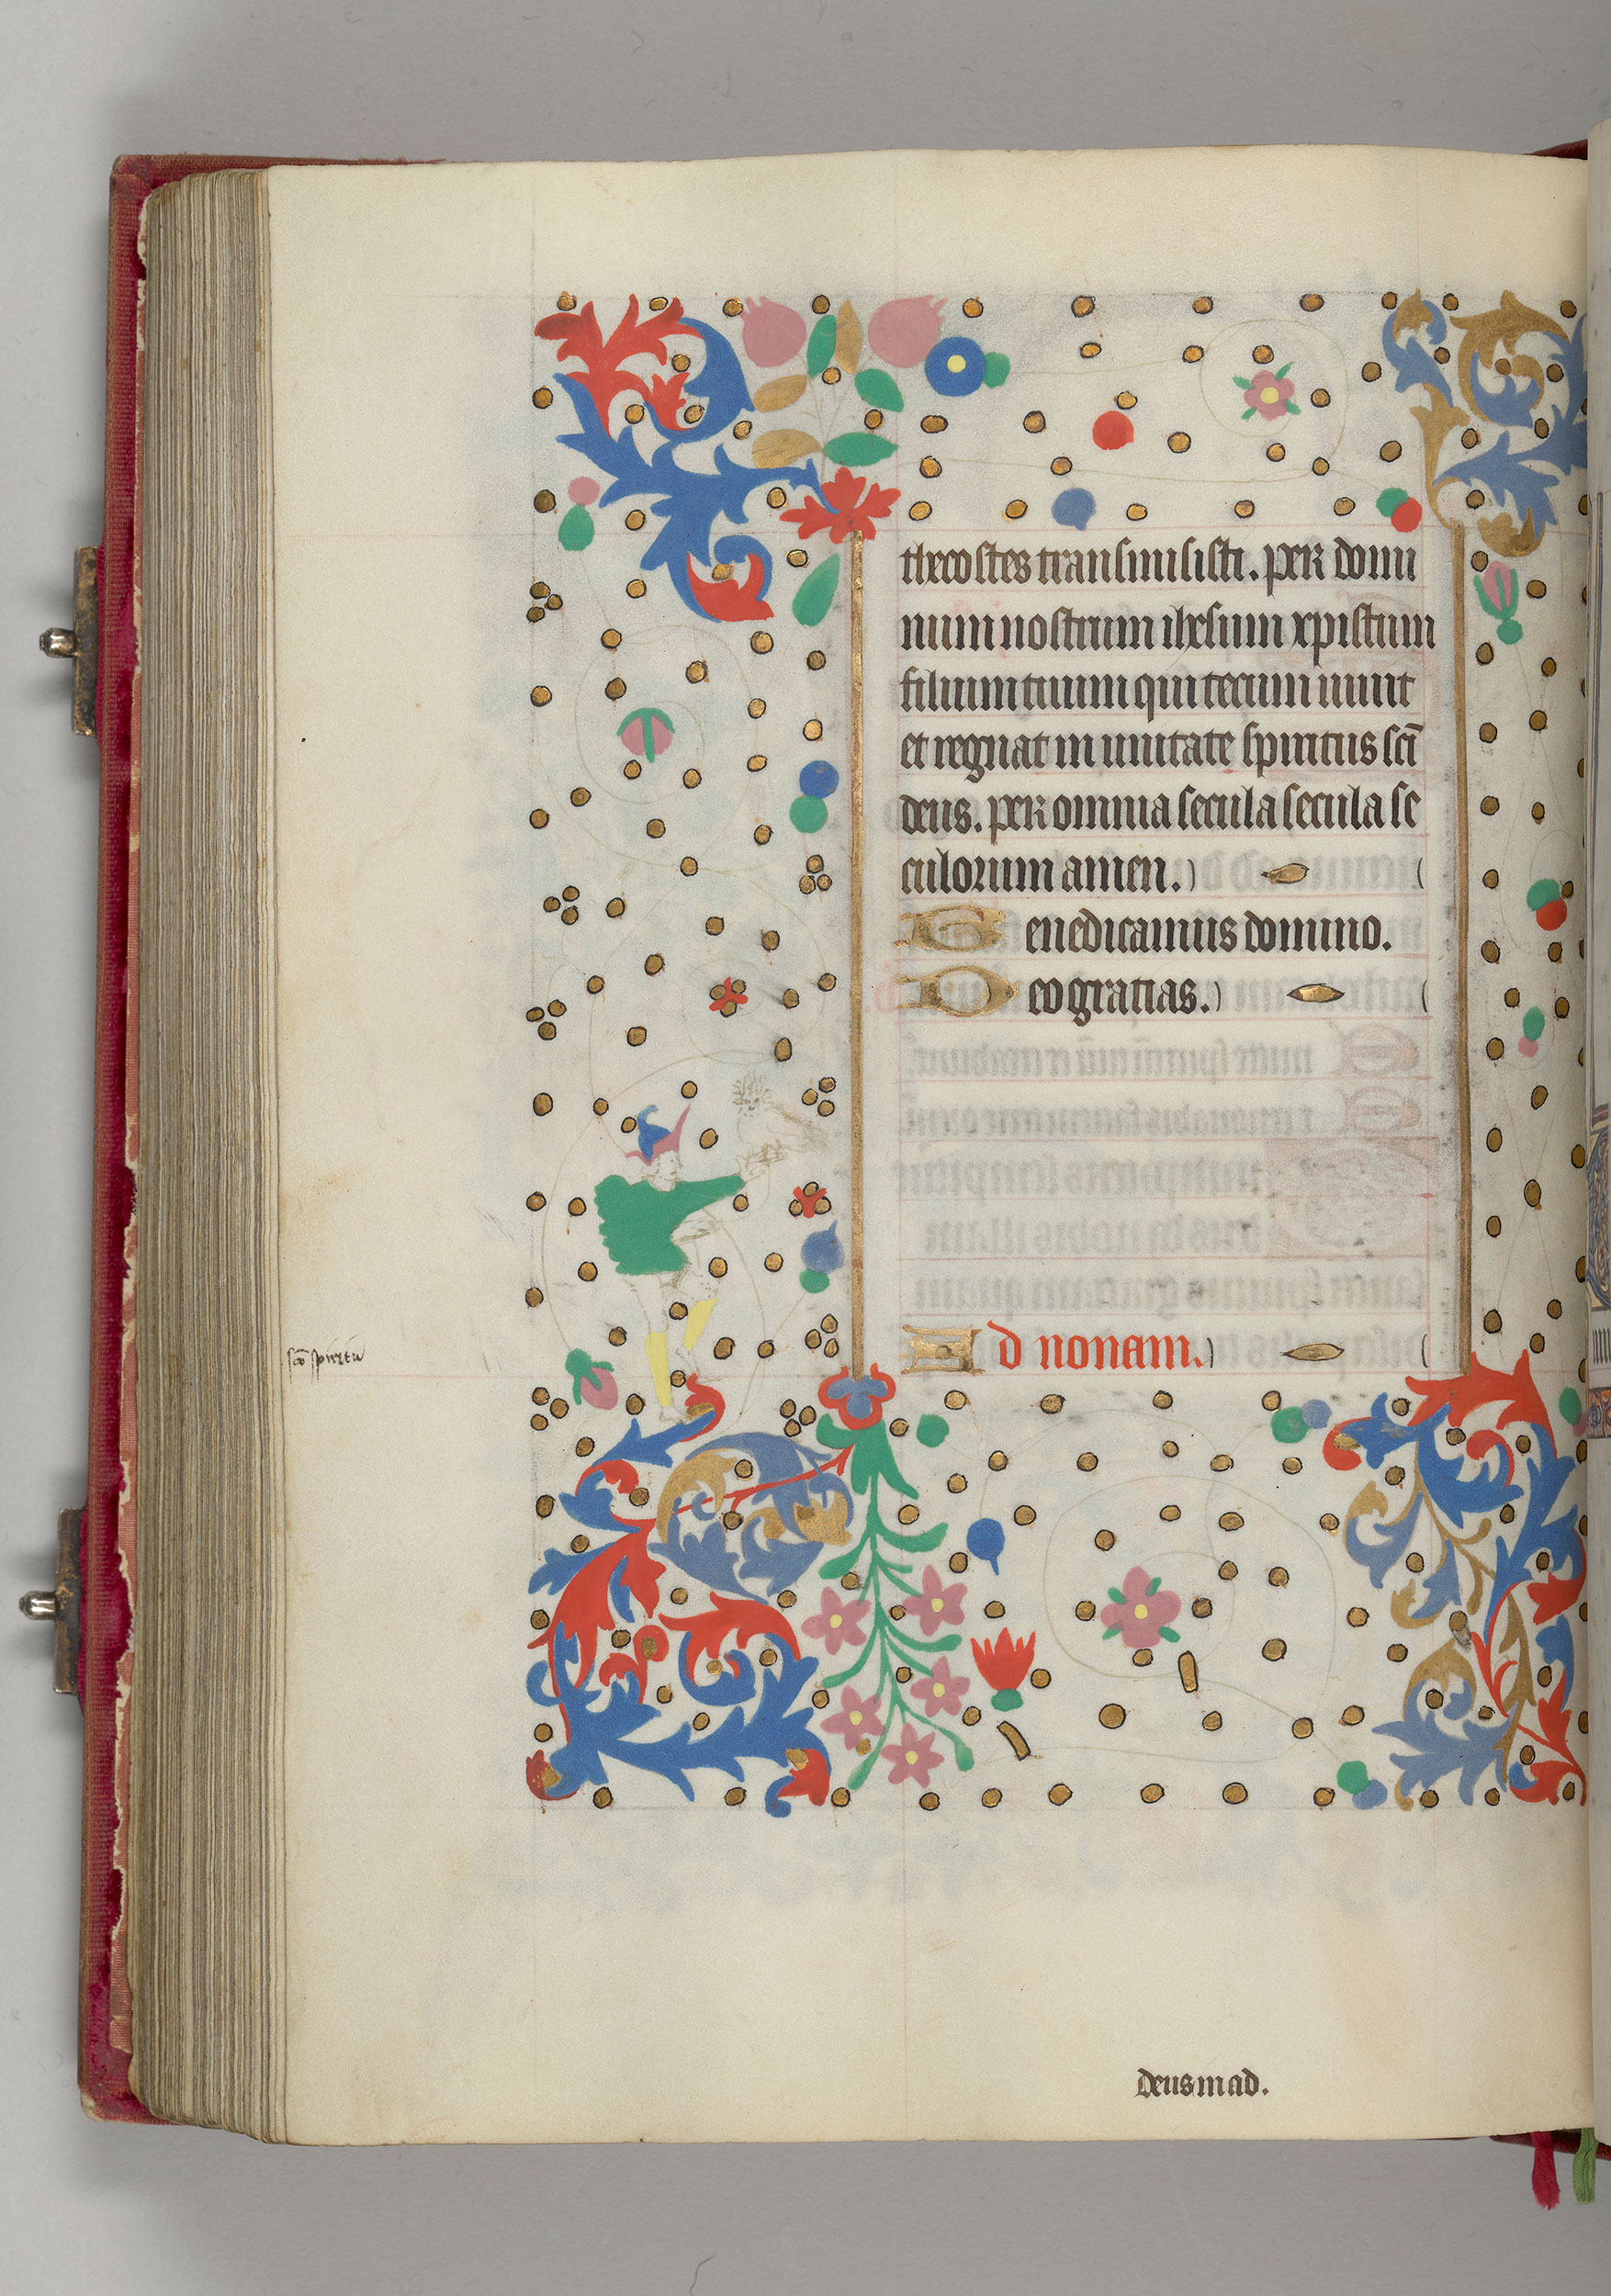 thecostes transmisisti. per domi
num nostrum ihesum xpistum
filium tuum qui tecum uiuit
et regnat in unitate spiritus scī
deus. per omnia secula secula se
culorum amen.
Benedicamus domino.
Deo gratias.
Ad nonam.
scō spiritu
deus in ad.